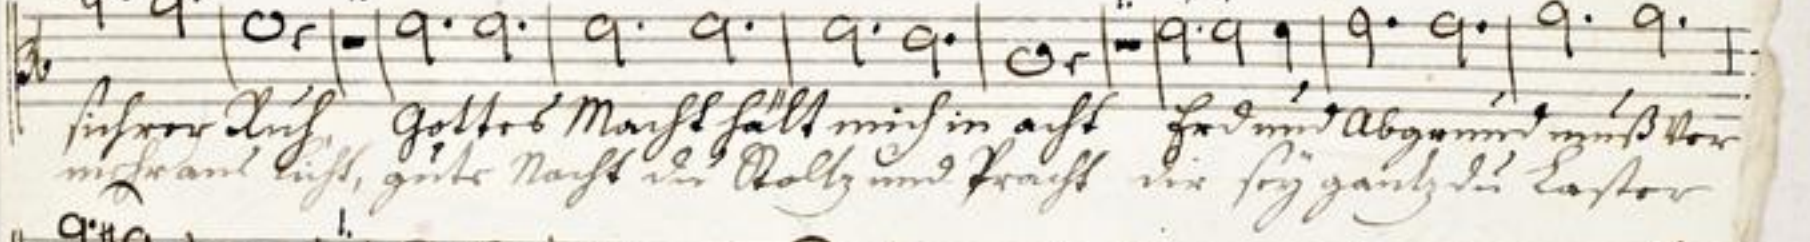 sichrer Ruh, Gottes Macht hält mich in acht Erd und Abgrund muß Ver
mehr ans licht, gute Nacht du Stoltz und Pracht dir sey gantz du Laster